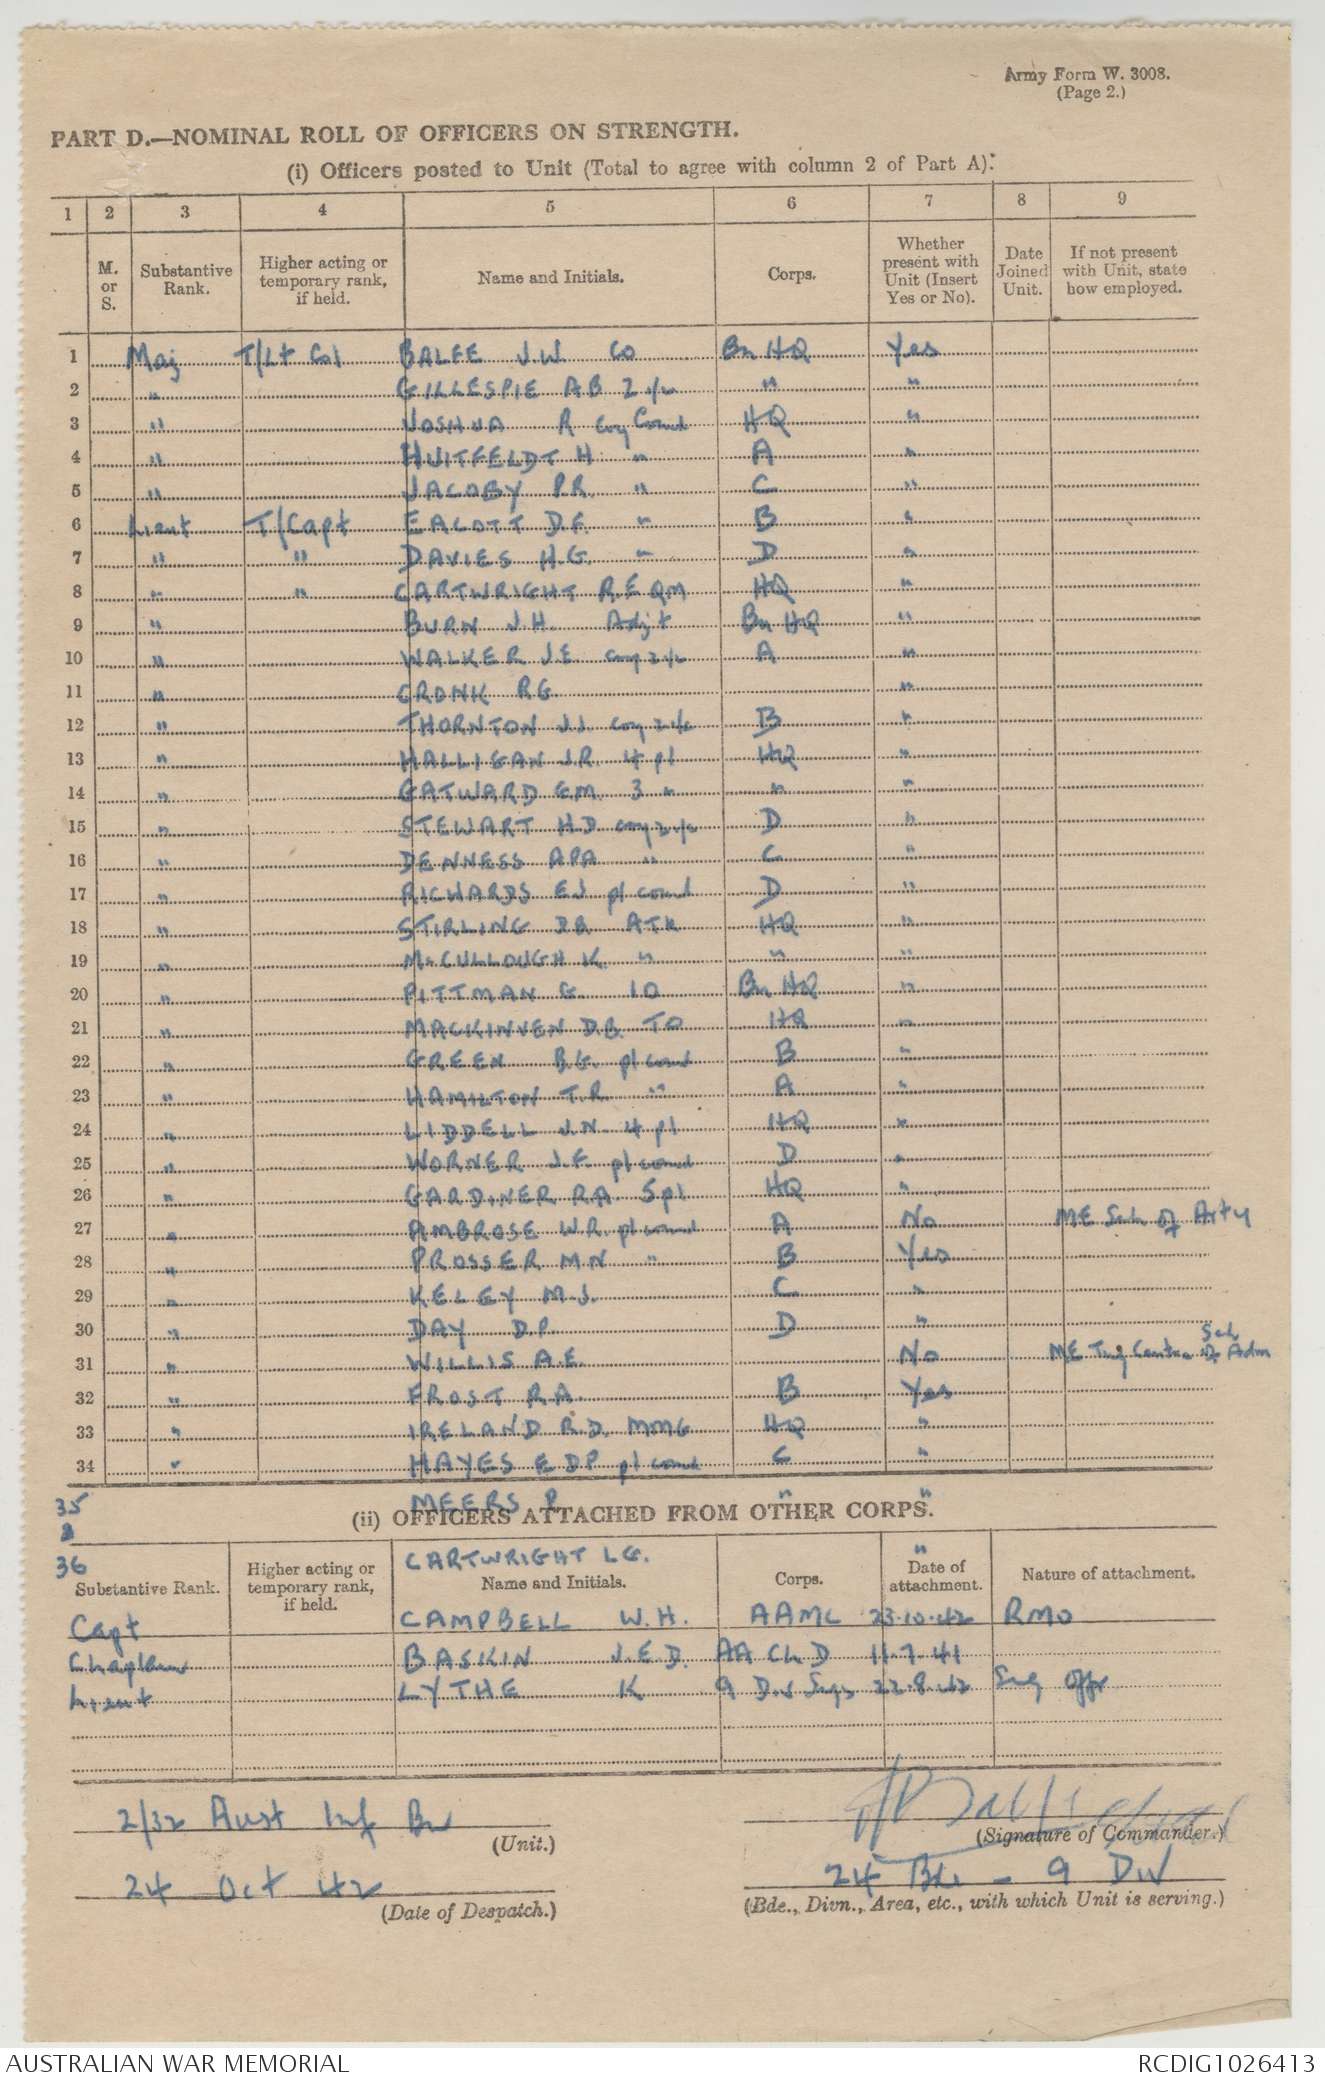 Army Form W. 3008.
(Page 2.)
PART D.—NOMINAL ROLL OF OFFICERS ON STRENGTH.
(i) Officers posted to Unit (Total to agree with column 2 of Part A).
1 2 3 4 5 6 7 8 9
M. or S. Substantive Rank. Higher acting or temporary rank, if held. Name and Initials. Corps. Whether present with Unit (Insert Yes or No). Date Joined Unit. If not present with Unit, state how employed.
1 Maj T/Lt Col BALFE J.W. CO Bn HQ Yes
2 " GILLESPIE A B 2 i/c " "
3 " JOSHUA R Coy Comd HQ "
4 " HUITFELDT H " A "
5 " JACOBY P.R. " C "
6 Lieut T/Capt EACOTT D.F. " B "
7 " " DAVIES H.G. " D "
8 " " CARTWRIGHT R.E QM HQ "
9 " BURN J.H. Adjt Bn HQ "
10 " WALKER J.E. Coy 2 i/c A "
11 " CRONK R G "
12 " THORNTON J.J. Coy 2 i/c B "
13 " HALLIGAN J.R. 4 pl HQ "
14 " GATWARD E.M. 3 " " "
15 " STEWART H D Coy 2 i/c D "
16 " DENNESS A P A " C "
17 " RICHARDS E J pl comd D "
18 " STIRLING D B ATK HQ "
19 " McCULLOUGH K. " " "
20 " PITTMAN G. I O Bn HQ "
21 " MACKINVEN D.B. TO HQ "
22 " GREEN B.G. pl comd B "
23 " HAMILTON T.R. " A "
24 " LIDDELL J.N. 4 pl HQ "
25 " WORNER J.F. pl comd D "
26 " GARDINER R A 5 pl HQ "
27 " AMBROSE W R. pl comd A No ME Sch of Arty
28 " PROSSER M N " B Yes
29 " KELEY M.J. C "
30 " DAY D.P. D "
31 " WILLIS A.E. No ME Trg Centre Sch of Adm
32 " FROST R A. B Yes
33 " IRELAND R.D. MMG HQ "
34 " HAYES E D P pl comd C "
35 MEERS P " "
(ii) OFFICERS ATTACHED FROM OTHER CORPS.
36 CARTWRIGHT L G. "
Substantive Rank. Higher acting or temporary rank, if held. Name and Initials. Corps. Date of attachment. Nature of attachment.
Capt CAMPBELL W.H. AAMC 23.10.42 RMO
Chaplain BASKIN J.E.D. AA Ch D 11.7.41
Lieut LYTHE K 9 Div Sigs 22.8.42 Sig Offr
2/32 Aust Inf Bn
(Unit.)
(Signature of Commander.)
24 Bde - 9 Div
24 Oct 42
(Date of Despatch.)
(Bde., Divn., Area, etc., with which Unit is serving.)
AUSTRALIAN WAR MEMORIAL RCDIG1026413